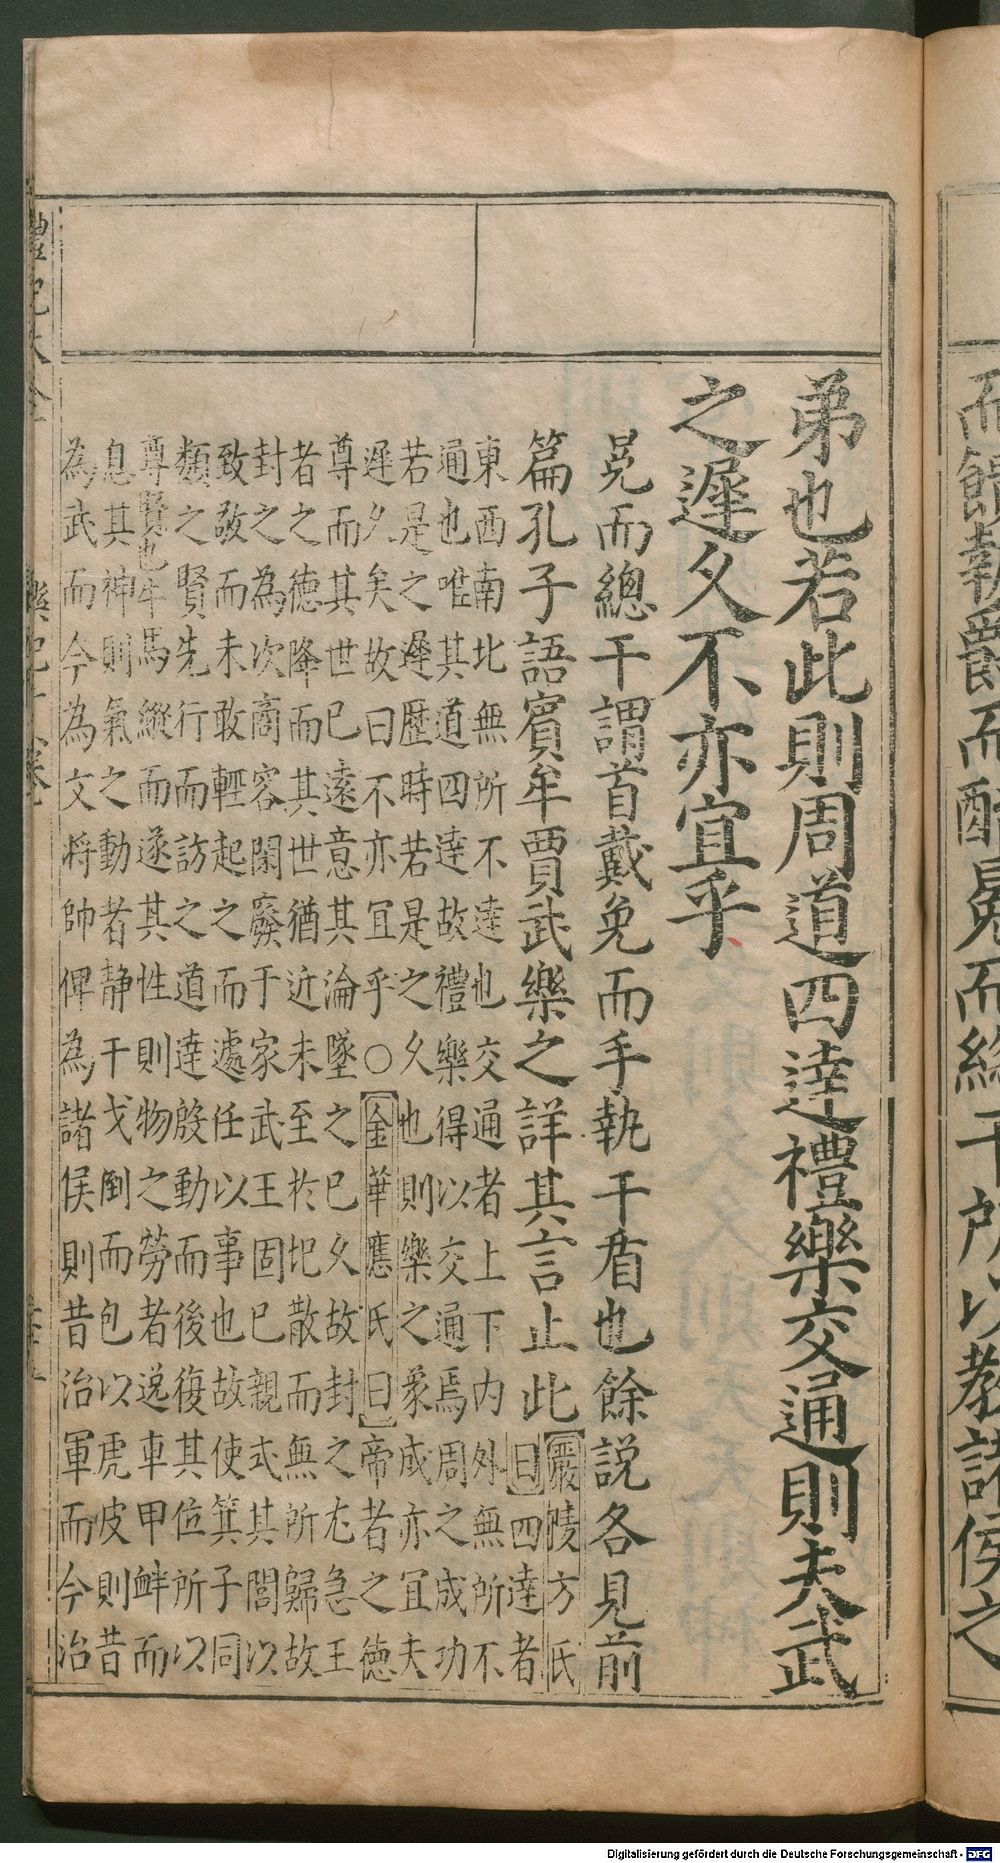 弟也若此則周道四達禮樂交通則夫武
之遲久不亦宜乎
冕而總干謂首戴免而手執干盾也餘説各見前
篇孔子語賓牟賈武樂之詳其言止此
嚴陵方氏
曰四達者
東西南北無所不達也交通者上下内外無所不
通也唯其道四達故禮樂得以交通焉周之成功
若是之遲歷時若是之久也則樂之象成亦宜夫
遲久矣故曰不亦宜乎○金華應氏曰帝者之德
尊而其世已遠意其淪墜之已久故封之尤急王
者之德降而其世猶近未至於圮散而無所歸故
封之為次商容閑廢于家武王固已親式其閭以
致敬而未敢輕起之而處任以事也故使箕子同
類之賢先行而訪之道達殷動而後復其位所以
尊賢也牛馬縱而遂其性則物之勞者逸車甲衅而
息其神則氣之動者静干戈倒而包以虎皮則昔
為武而今為文将帥俾為諸侯則昔治軍而今治
禮記大全
樂記十八卷
而饋執爵而酳冕而總干所以教諸侯之
Digitalisierung gefördert durch die Deutsche Forschungsgemeinschaft - DFG